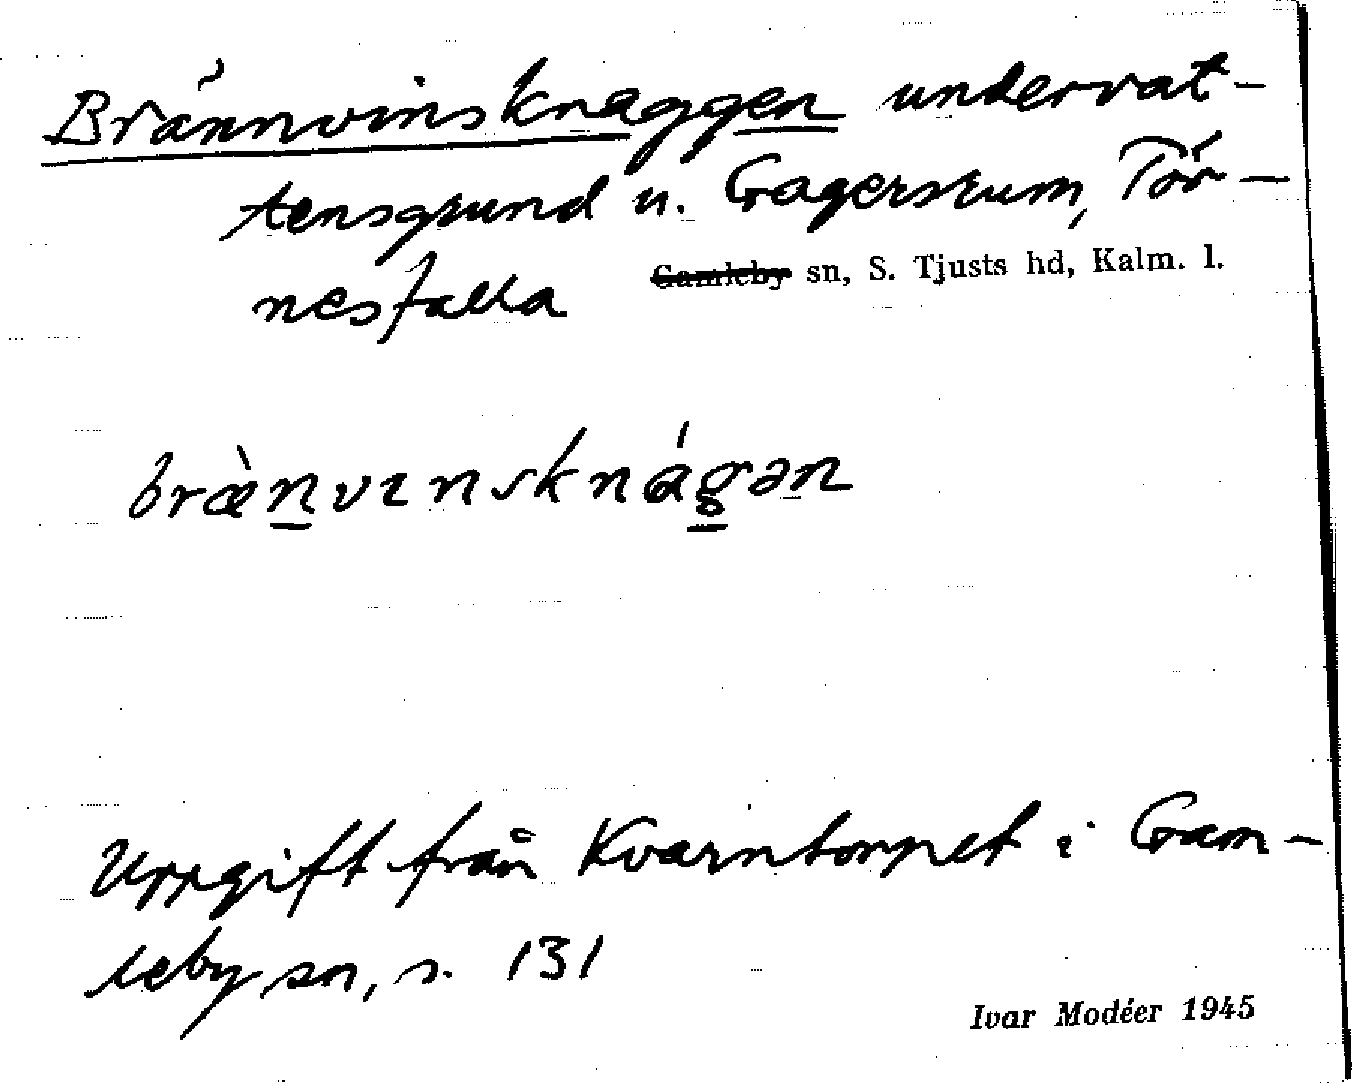 Brännvinsknaggen undervat-
tensgrund n. Gagersrum, Tör-
nesfalla Gamleby sn, S. Tjusts hd, Kalm. l.
bræ̀nvinsknágən
Uppgift från Kvarntorpet i Gam-
leby sn, s. 131
Ivar Modéer 1945